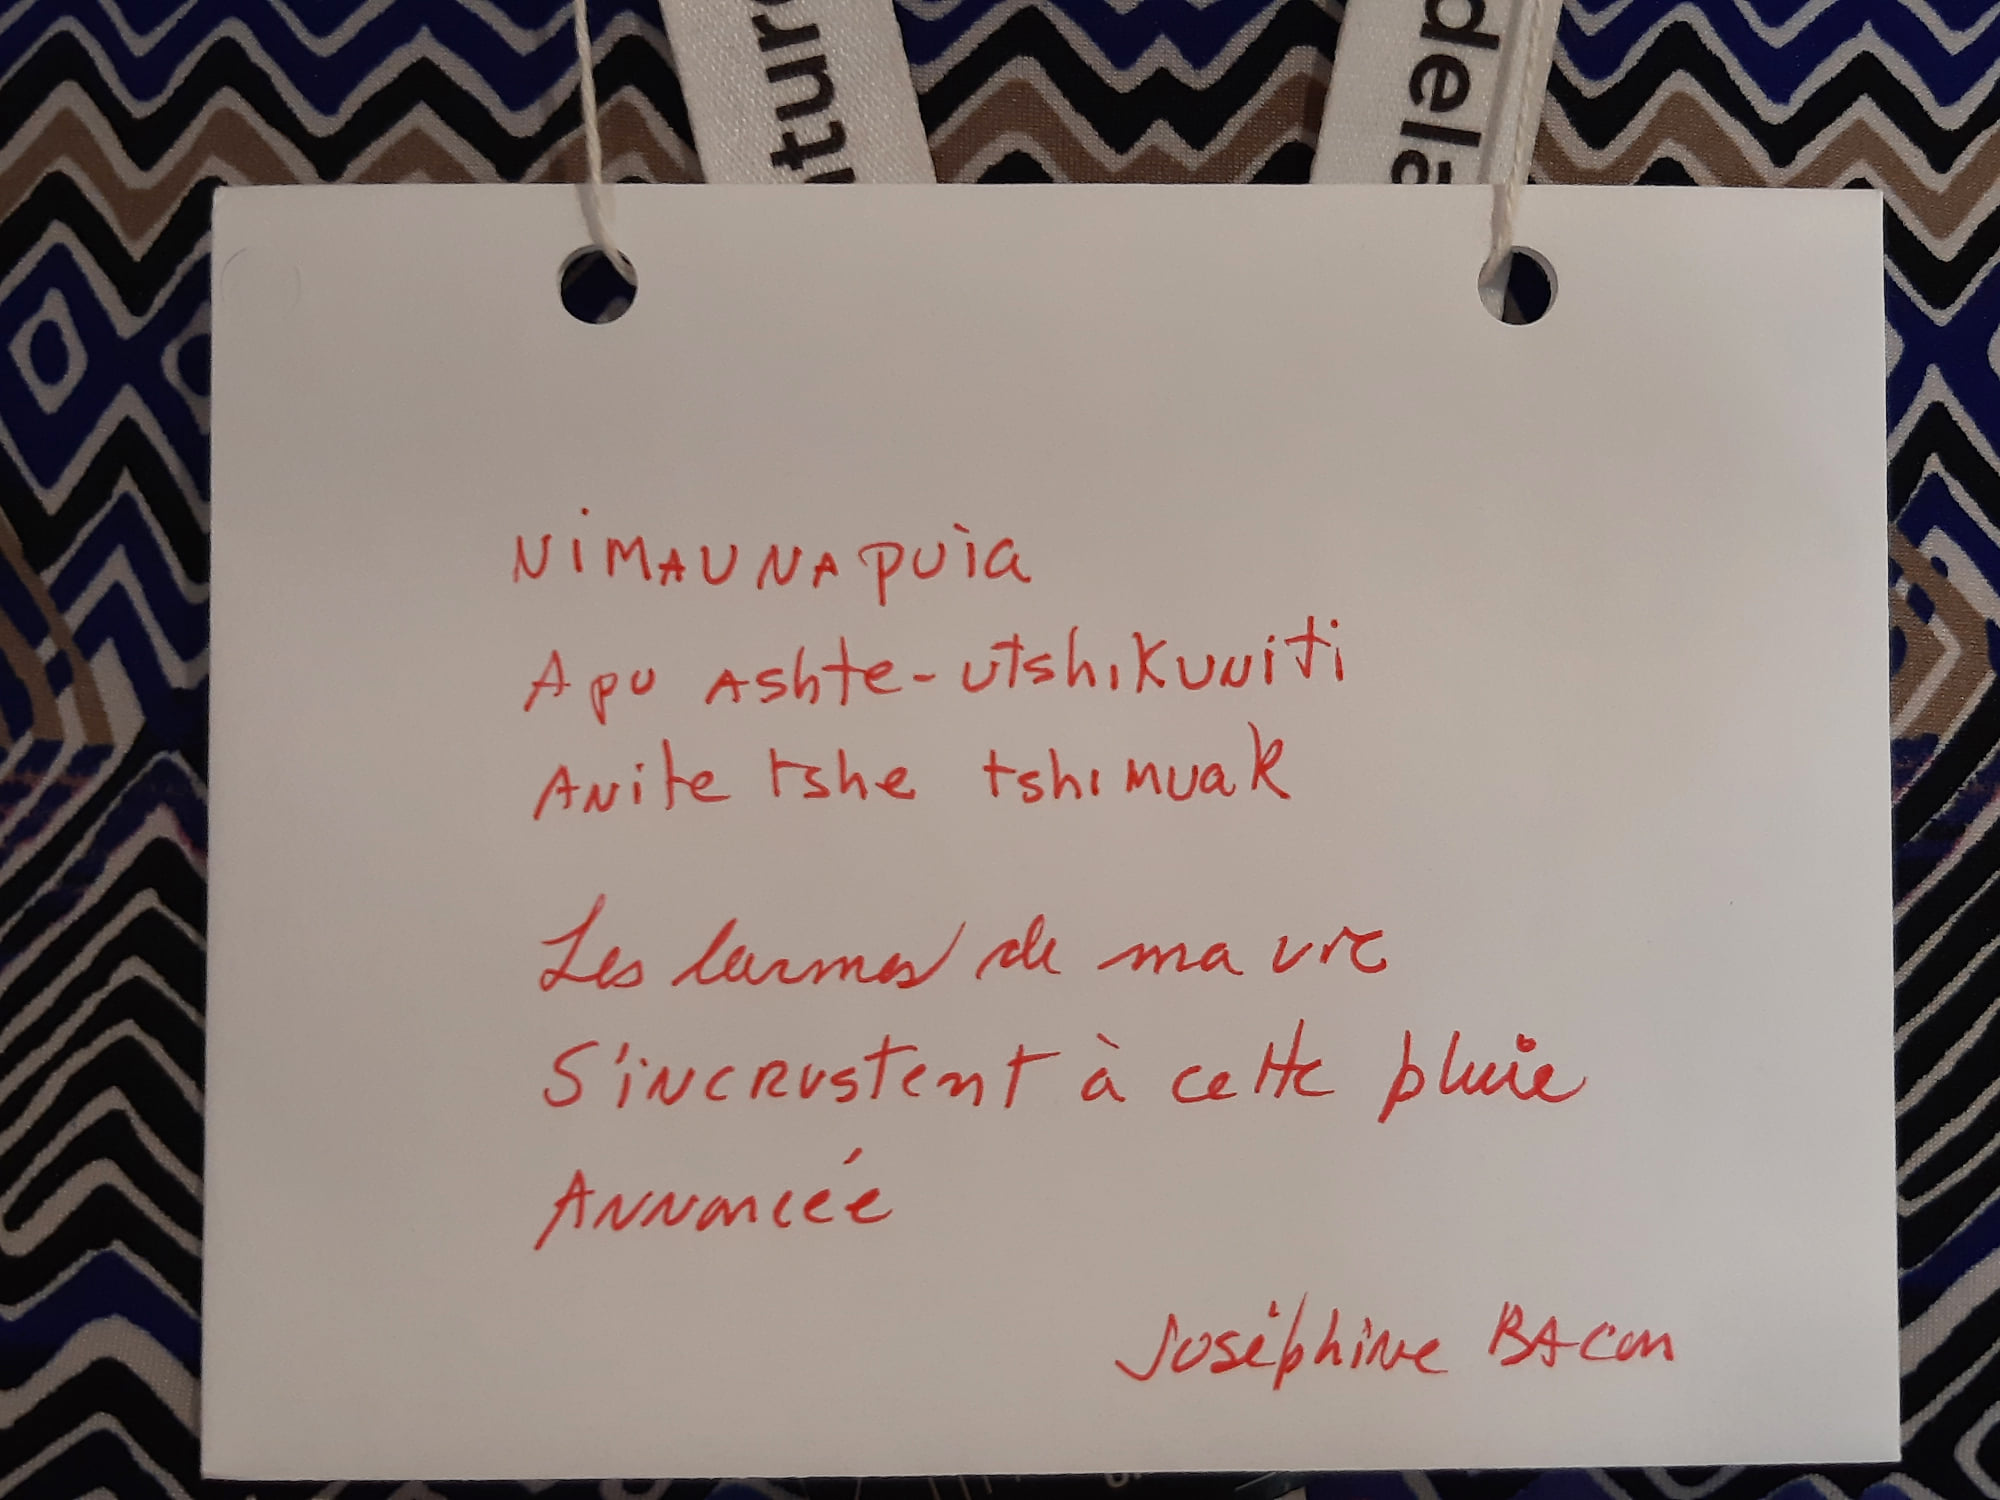 ture
delà
NiMAUNApuìa
Apu Ashte-utshikuniti
Anite tshe tshimuak
Les larmes de ma vie
S'incrustent à cette pluie
Annoncée
Joséphine Bacon